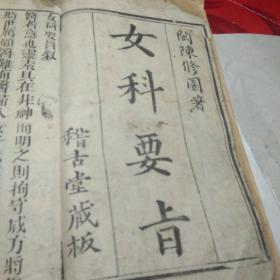 閩陳修園著
女科要旨
稽古堂藏板
女科要旨敘
醫者意也靈素具在非神而明之則拘守成方將